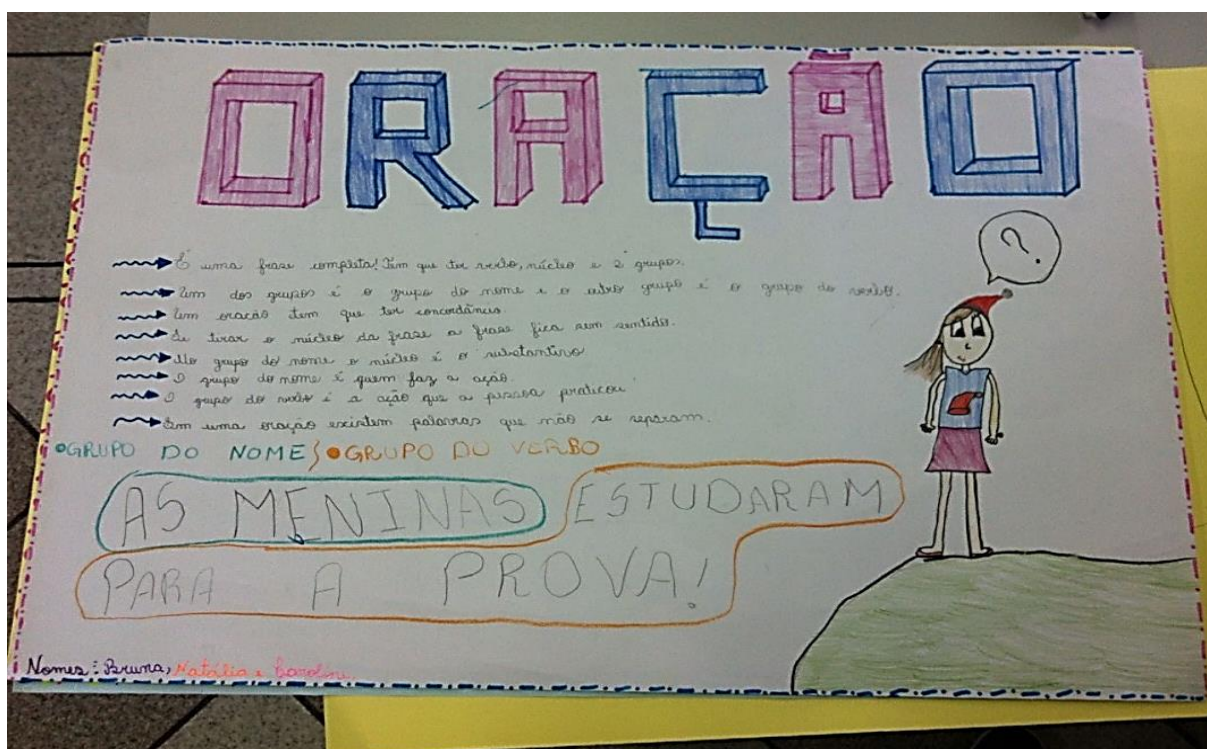 ORAÇÃO
?
É uma frase completa! Tem que ter verbo, núcleo e 2 grupos.
Um dos grupos é o grupo do nome e o outro grupo é o grupo do verbo.
Um oração tem que ter concordância.
Se tirar o núcleo da frase a frase fica sem sentido.
No grupo do nome o núcleo é o substantivo
O grupo do nome é quem faz a ação.
O grupo do verbo é a ação que a pessoa praticou.
Em uma oração existem palavras que não se separam.
GRUPO DO NOME/ GRUPO DO VERBO
AS MENINAS ESTUDARAM
PARA A PROVA!
Nomes: Bruna, Natália e